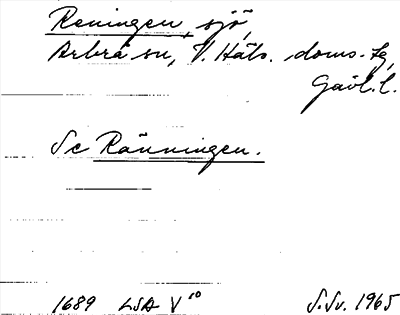 Reningen, sjö,
Arbrå sn, V. Häls. doms.-tg,
Gävl. l.
Se Ränningen.
1689 LSA V¹⁰ S. Sv. 1965